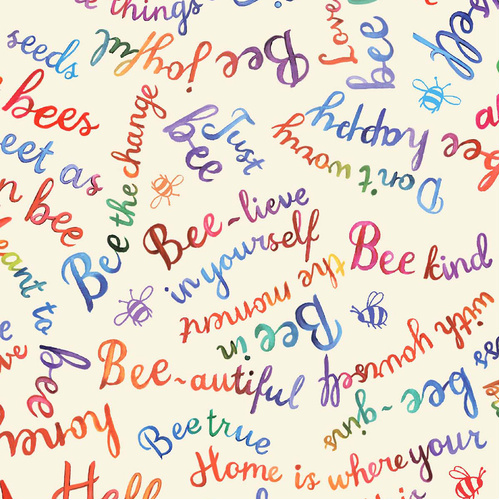 things
Bee joyful
bee
seeds
bees
eet as
bee
Bee the change
Just
bee
Don't worry
happy
bee
eant to
bee
Bee-lieve
in yourself
Bee kind
Bee in
the moment
Bee-autiful
Bee true
bee-gins
with yourself
Home is where your
is